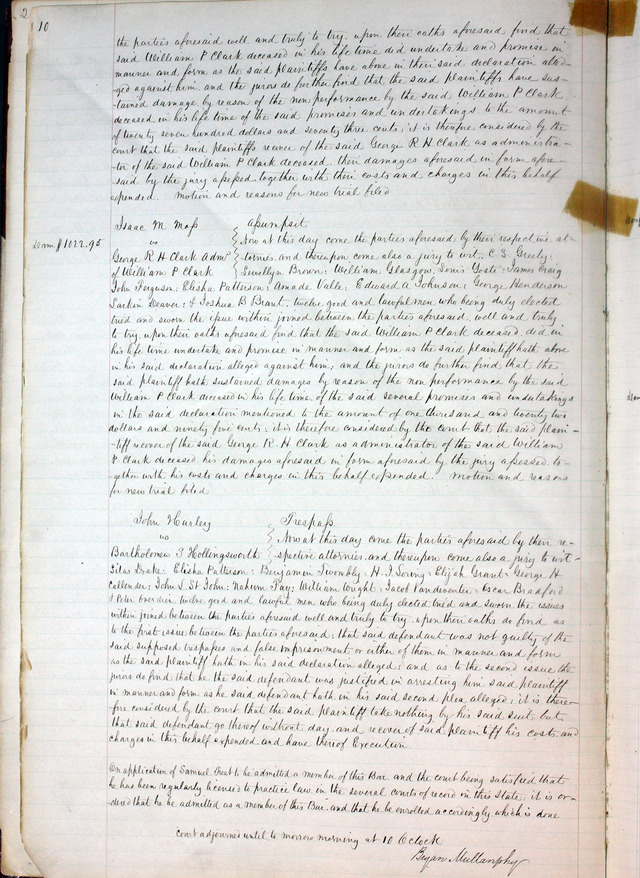 2
10
the parties aforesaid well and truly to try, upon their oaths aforesaid find that
said William P Clark deceased in his life time did undertake and promise in
manner and form as the said plaintiffs have above in their said declaration alled-
ged against him, and the jurors do further find that the said plaintiffs have sus-
tained damage by reason of the non performance by the said William P Clark
deceased in his life time of the said promises and undertakings to the amount
of twenty seven hundred dollars and seventy three cents; it is therefore considered by the
court that the said plaintiffs recover of the said George R H Clark as administra-
tor of the said William P Clark deceased their damages aforesaid in form afore-
said by the jury assessed together with their costs and charges in this behalf
expended. motion and reasons for new trial filed
Isaac M Moss assumpsit
vs Now at this day come the parties aforesaid by their respective at-
Dam $1022.95
George R H Clark Admr tornies and thereupon come also a jury to wit, C. S. Greely;
of William P Clark Lewellyn Brown; William Glasgow; Louis Yosti; James Craig
John Ferguson; Elisha Patterson; Amade Valle; Edward A Johnson; George Henderson
Larkin Deaver; & Joshua B Brant, twelve good and lawful men who being duly elected
tried and sworn the issue within joined between the parties aforesaid well and truly
to try, upon their oaths aforesaid find that the said William P Clark deceased, did in
his life time undertake and promise in manner and form as the said plaintiff hath above
in his said declaration alleged against him; and the jurors do further find, that the
said plaintiff hath sustained damages by reason of the non performance by the said
William P Clark deceased in his life time, of the said several promises and undertakings
in the said declaration mentioned to the amount of one thousand and twenty two
dollars and ninety five cents; it is therefore considered by the court that the said plain-
tiff recover of the said George R. H Clark as administrator of the said William
P Clark deceased his damages aforesaid in form aforesaid by the jury assessed to-
gether with his costs and charges in this behalf expended. motion and reasons
for new trial filed
John Hurley Trespass.
vs Now at this day come the parties aforesaid by their re-
Bartholomew S Hollingsworth spective attornies and thereupon come also a jury to wit
Silas Drake; Elisha Patterson; Benjamin Twombly; H. J. Loring; Elijah Grant; George H
Callender; John L St John; Nahum Fay; William Wright; Jacob Vandeventer; Oscar Bradford
& Peter twelve good and lawful men who being duly elected tried and sworn the issues
within joined between the parties aforesaid well and truly to try, upon their oaths do find as
to the first issue between the parties aforesaid; that said defendant was not guilty of the
said supposed trespasses and false imprisonment or either of them in manner and form
as the said plaintiff hath in his said declaration alleged; and as to the second issue the
jurors do find that he the said defendant was justified in arresting him said plaintiff
in manner and form as he said defendant hath in his said second plea alleged; it is there-
fore considered by the court that the said plaintiff take nothing by his said suit, but
that said defendant go thereof without day, and recover of said plaintiff his costs and
charges in this behalf expended and have thereof Execution.
On application of Samuel Treat to be admitted a member of this Bar and the court being satisfied that
he has been regularly licensed to practice law in the several courts of record in this State; it is or-
dered that he be admitted as a member of this Bar and that he be enrolled accordingly which is done
court adjourned until to morrow morning at 10 O'clock
Bryan Mullanphy